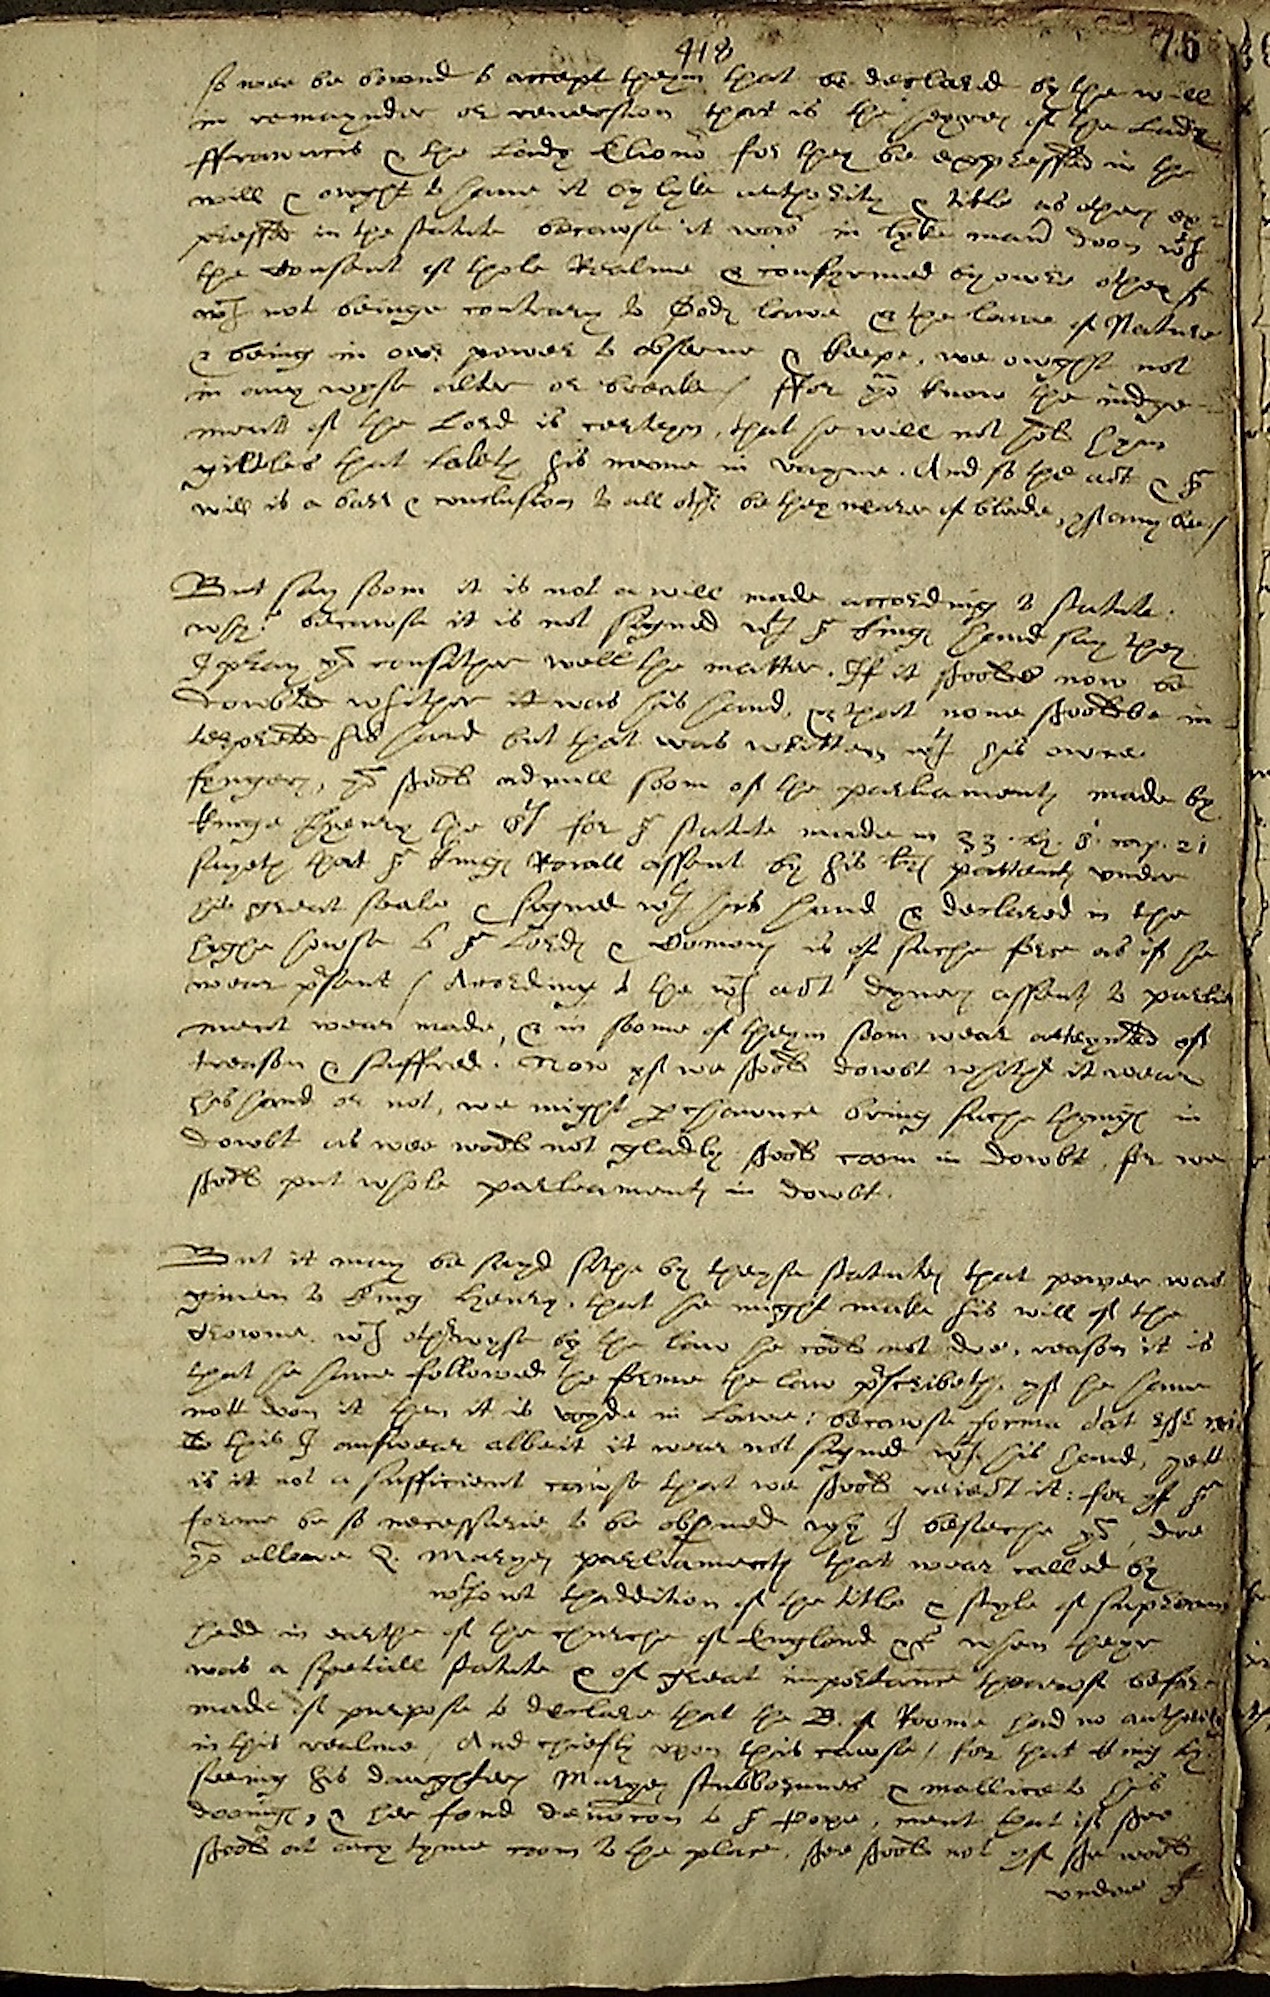 418
75
so wee be bownd to accept theym that be declared by the will
in remaynder or reversion that is the heyres of the Lady
ffrauncis & the Lady Elionor for they be expressed in the
will & owght to have it by lyke authority & title as others ex-
pressed in the statute becawse it was in lyke maner doon wth
the consent of thole Realme & confyrmed by owre othes
wch not beinge contrary to Gods lawe & the lawe of Nature
& being in our power to observe & keepe, we owght not
in any wyse alter or breake / ffor yow know the iudge-
ment of the Lord is certeyn, that he will not hold hym
giltles that taketh his name in vayne. And so the act & ye
will is a barr & conclusion to all other be they neare of bloode, yf any bee /
But say soom it is not a will made according to statute.
why? becawse it is not signed wth ye kings hand say they
I pray you consither well the matter. If it shoold now be
dowbted whither it was his hand, & that none shoold be in-
terpreted his hand but that was written wth his owne
fyngers, yow shoold adnull soom of the parliaments made by
kinge Henry the 8th for ye statute made in 33. H. 8. cap. 21
sayeth that ye kings Roiall assent by his lres pattents under
his great seale & signed wth his hand & declared in the
highe howse to ye Lords & Comons is of suche force as if he
wear present / Acording to the wch act dyvers assents to parlia
ment wear made, & in soome of theym soom wear atteynted of
treason & suffred. Now yf we shoold dowbt whither it weare
his hand or not, we might perchaunce bring suche thyngs in
dowbt as wee woold not gladly shoold coom in dowbt, for we
shoold put whole parleaments in dowbt.
But it may be sayd sithe by theyse statutes that power was
given to King Henry, that he might make his will of the
Crowne. wch otherwyse by the law he coold not doe, reason it is
that he have followed the forme the law prescribeth, yf he have
nott doon it then it is voyde in Lawe: becawse forma dat esse rei
To this I answear albeit it wear not signed wth his hand, yett
is it not a sufficient cawse that we shoold reiect it: for yf ye
forme be so necessarie to be observed why I beseche you, doe
yow allowe Q. Maryes parliaments that wear called by
wthowt thaddition of the title & style of supreame
hedd in earthe of the churche of England &c when theyr
was a speciall statute & of great importance thearof before
made of purpose to declare that the B. of Roome had no authority
in this realme / And chiefly upon this cawse / for that King H.
seeing his dawghters Maryes stubbornnes & mallice to his
doeings, & her fond devocon to ye Pope, ment that if shee
shoold at any tyme coom to the place, shee shoold not yf she woold
undoe yt